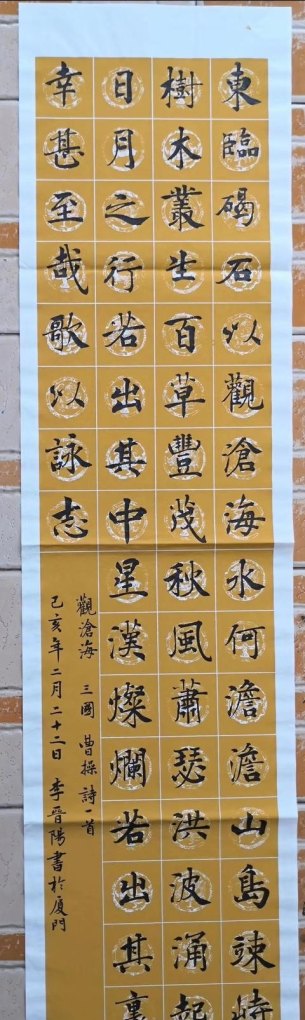 東臨碣石以觀滄海水何澹澹山島竦峙
樹木叢生百草豐茂秋風蕭瑟洪波涌起
日月之行若出其中星漢燦爛若出其裏
幸甚至哉歌以詠志
觀滄海 三國 曹操詩一首
己亥年二月二十二日 李晉陽書於厦門